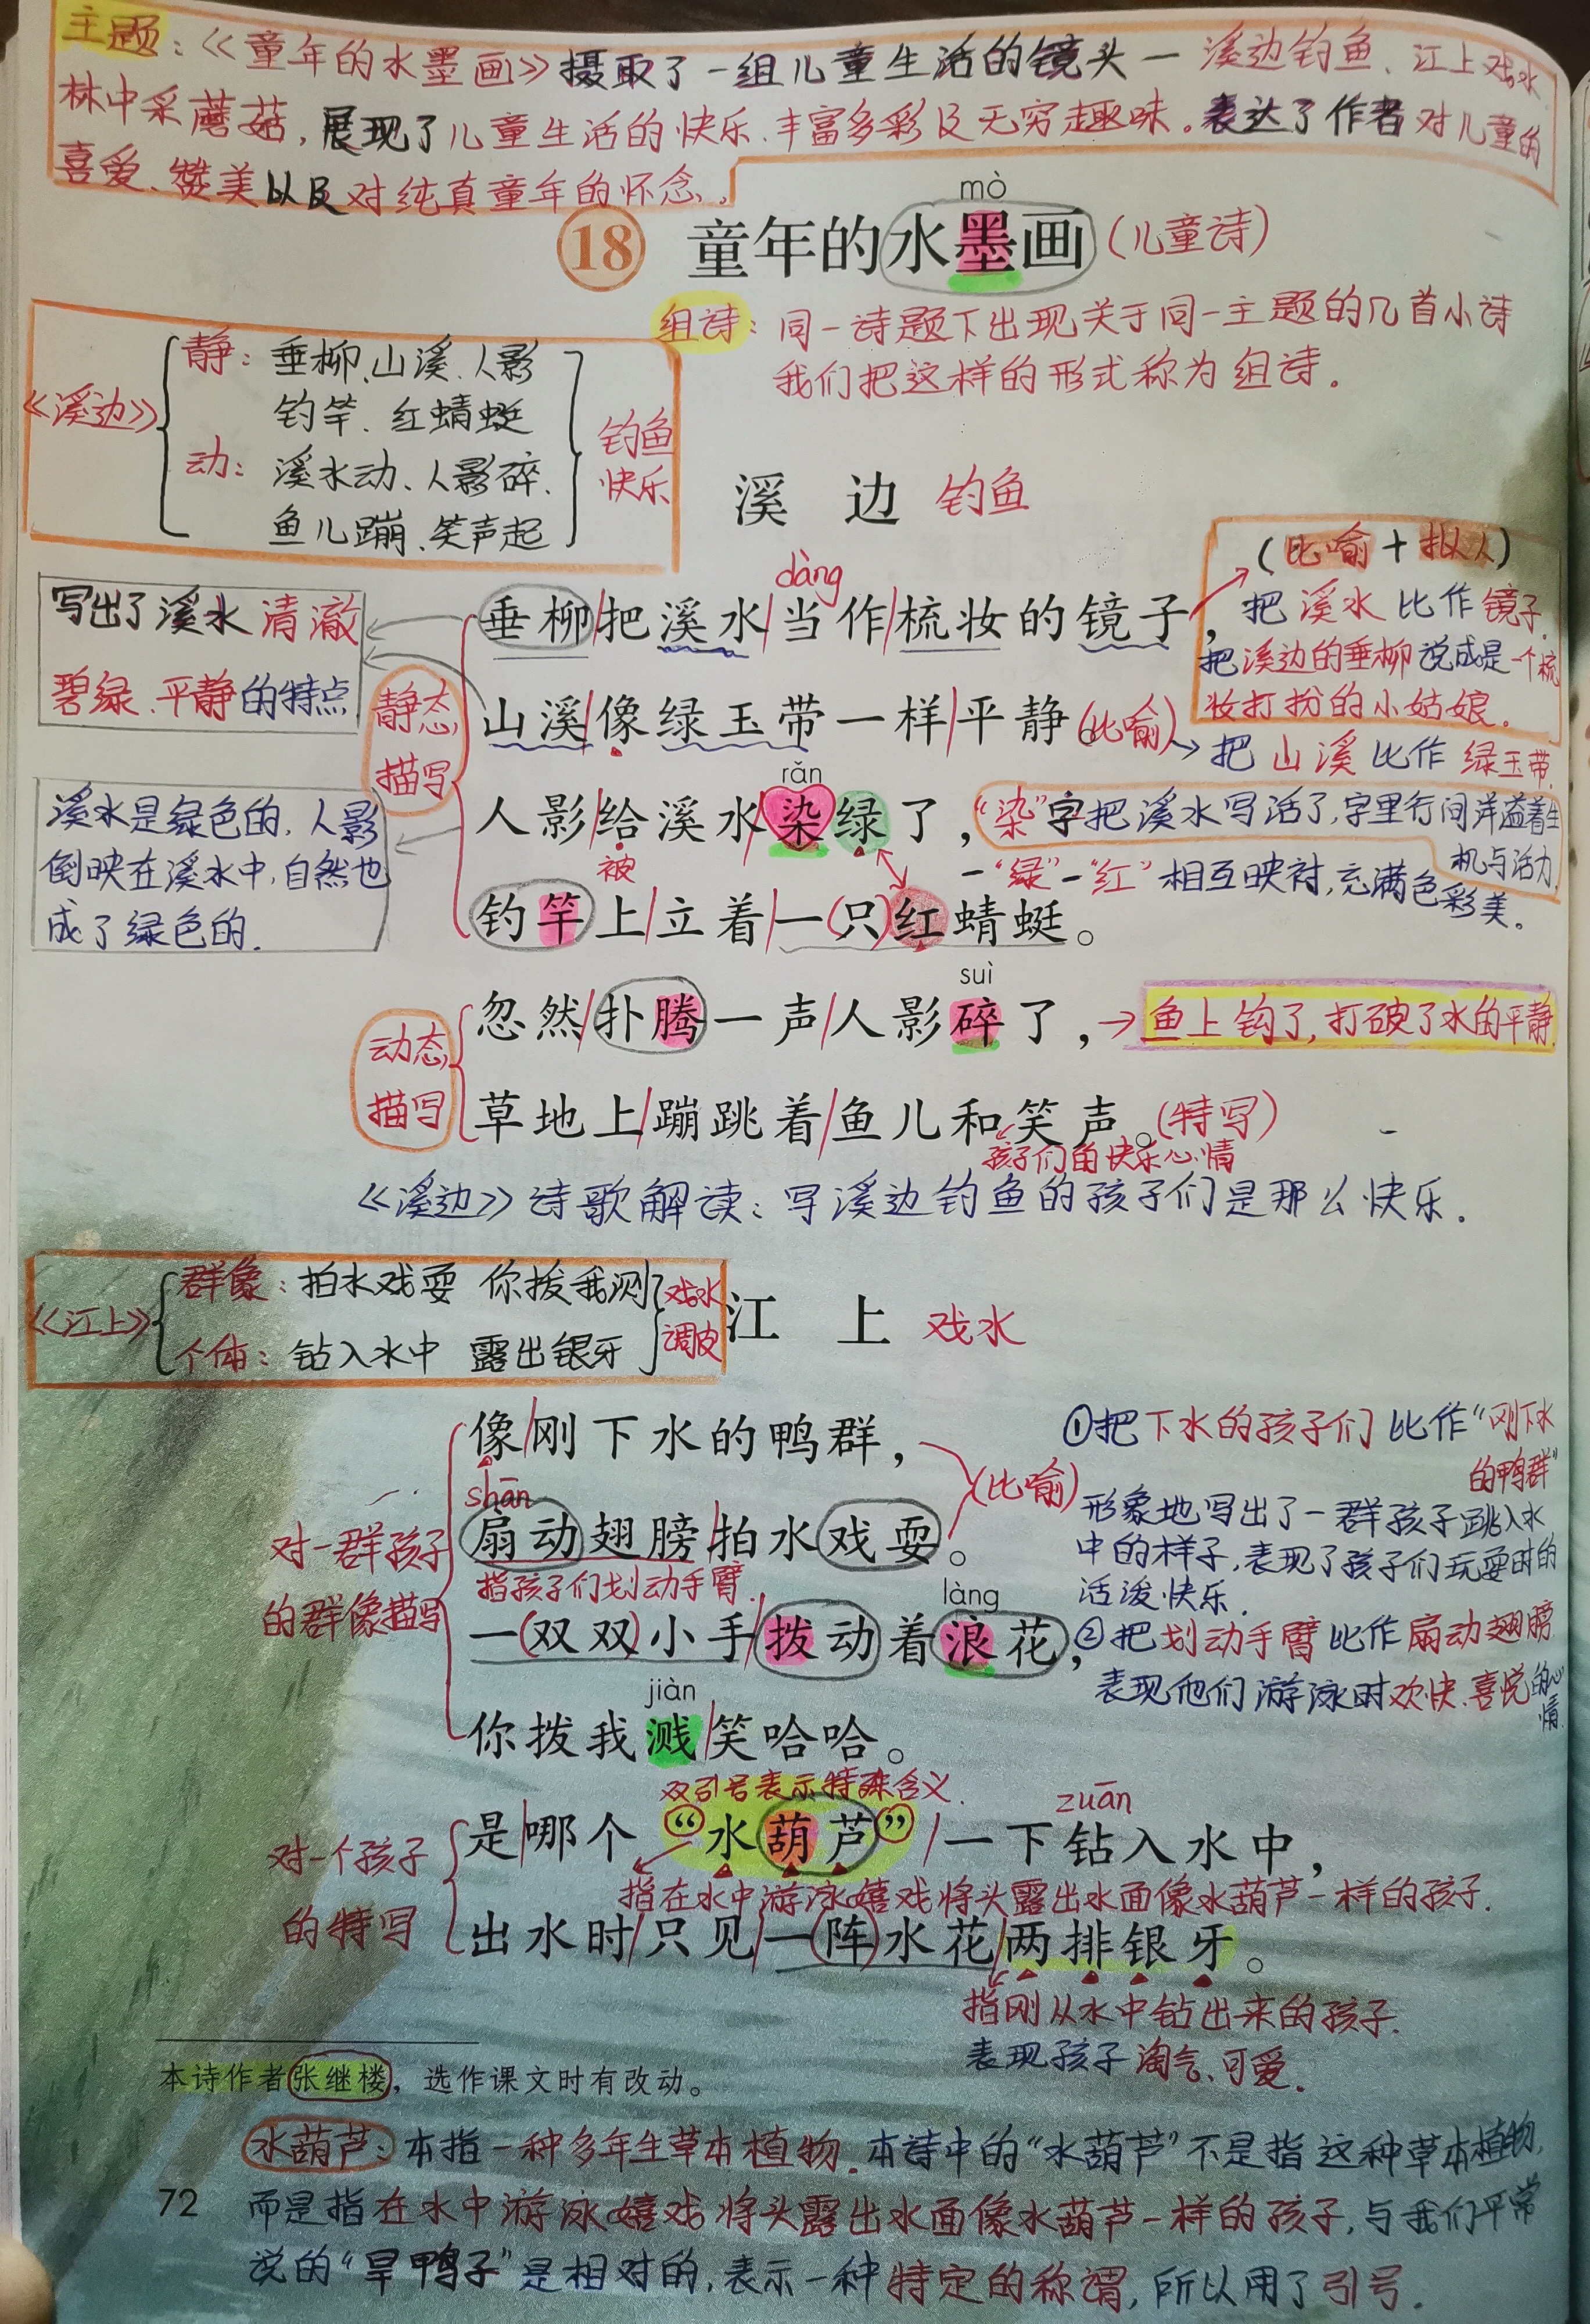 主题：《童年的水墨画》摄取了一组儿童生活的镜头—溪边钓鱼、江上戏水、
林中采蘑菇，展现了儿童生活的快乐、丰富多彩及无穷趣味。表达了作者对儿童的
喜爱、赞美以及对纯真童年的怀念。
mò
18 童年的水墨画（儿童诗）
组诗：同一诗题下出现关于同一主题的几首小诗
我们把这样的形式称为组诗.
《溪边》
静：垂柳、山溪、人影
钓竿、红蜻蜓
动：溪水动、人影碎、
鱼儿蹦、笑声起
钓鱼
快乐
溪 边 钓鱼
写出了溪水清澈
碧绿、平静的特点
静态
描写
dàng
垂柳把溪水当作梳妆的镜子，
（比喻+拟人）
把溪水比作镜子.
把溪边的垂柳说成是一个梳
妆打扮的小姑娘.
山溪像绿玉带一样平静。（比喻）
把山溪比作绿玉带.
溪水是绿色的，人影
倒映在溪水中，自然也
成了绿色的.
rǎn
人影给溪水染绿了，
被
“染”字把溪水写活了，字里行间洋溢着生
机与活力.
一“绿”一“红”相互映衬，充满色彩美.
钓竿上立着一只红蜻蜓。
动态
描写
suì
忽然扑腾一声人影碎了，
鱼上钩了，打破了水的平静.
草地上蹦跳着鱼儿和笑声。（特写）
孩子们的快乐心情
《溪边》诗歌解读：写溪边钓鱼的孩子们是那么快乐.
《江上》
群象：拍水戏耍 你拨我溅
个体：钻入水中 露出银牙
戏水
调皮
江 上 戏水
对一群孩子
的群像描写
像刚下水的鸭群，
shān
扇动翅膀拍水戏耍。
（比喻）
指孩子们划动手臂.
làng
一双双小手拨动着浪花，
jiàn
你拨我溅笑哈哈。
①把下水的孩子们比作“刚下水
的鸭群”
形象地写出了一群孩子跳入水
中的样子，表现了孩子们玩耍时的
活泼、快乐.
②把划动手臂比作扇动翅膀
表现他们游泳时欢快、喜悦的心
情.
对一个孩子
的特写
双引号表示特殊含义.
zuān
是哪个“水葫芦”一下钻入水中，
指在水中游泳嬉戏将头露出水面像水葫芦一样的孩子.
出水时只见一阵水花两排银牙。
指刚从水中钻出来的孩子.
表现孩子淘气、可爱.
本诗作者张继楼，选作课文时有改动。
水葫芦：本指一种多年生草本植物.本诗中的“水葫芦”不是指这种草本植物，
72
而是指在水中游泳嬉戏将头露出水面像水葫芦一样的孩子，与我们平常
说的“旱鸭子”是相对的，表示一种特定的称谓，所以用了引号.